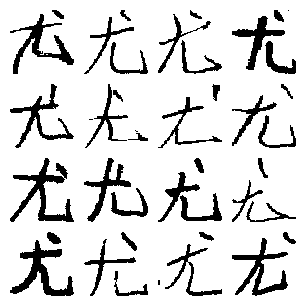 尤尤尤尤
尤尤尤尤
尤尤尤尤
尤尤尤尤